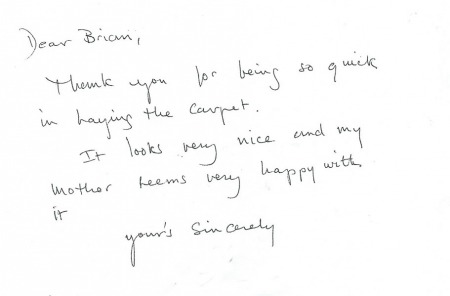 Dear Brian,
Thank you for being so quick
in laying the carpet.
It looks very nice and my
mother seems very happy with
it
your's Sincerely